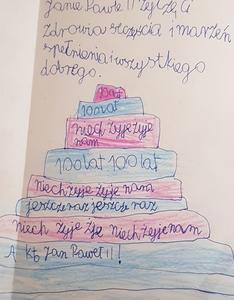 Janie Pawle II życzę Ci
zdrowia szczęścia i marzeń
spełnienia i wszystkiego
dobrego.
100lat
100lat
niech żyje żyje
nam
100 lat 100 lat
niech żyje żyje nam
jeszcze raz jeszcze raz
niech żyje żyje niech żyje nam
A kto Jan Paweł II!